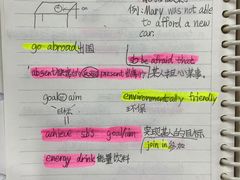 例: Mary was not able
to afford a new
car.
go abroad 出国
to be afraid that
absent 缺席的 present 出席的
某人担心某事
goal = aim
目标
environmentally friendly
环保
achieve sb's goal/aim 实现某人的目标
join in 参加
energy drink 能量饮料